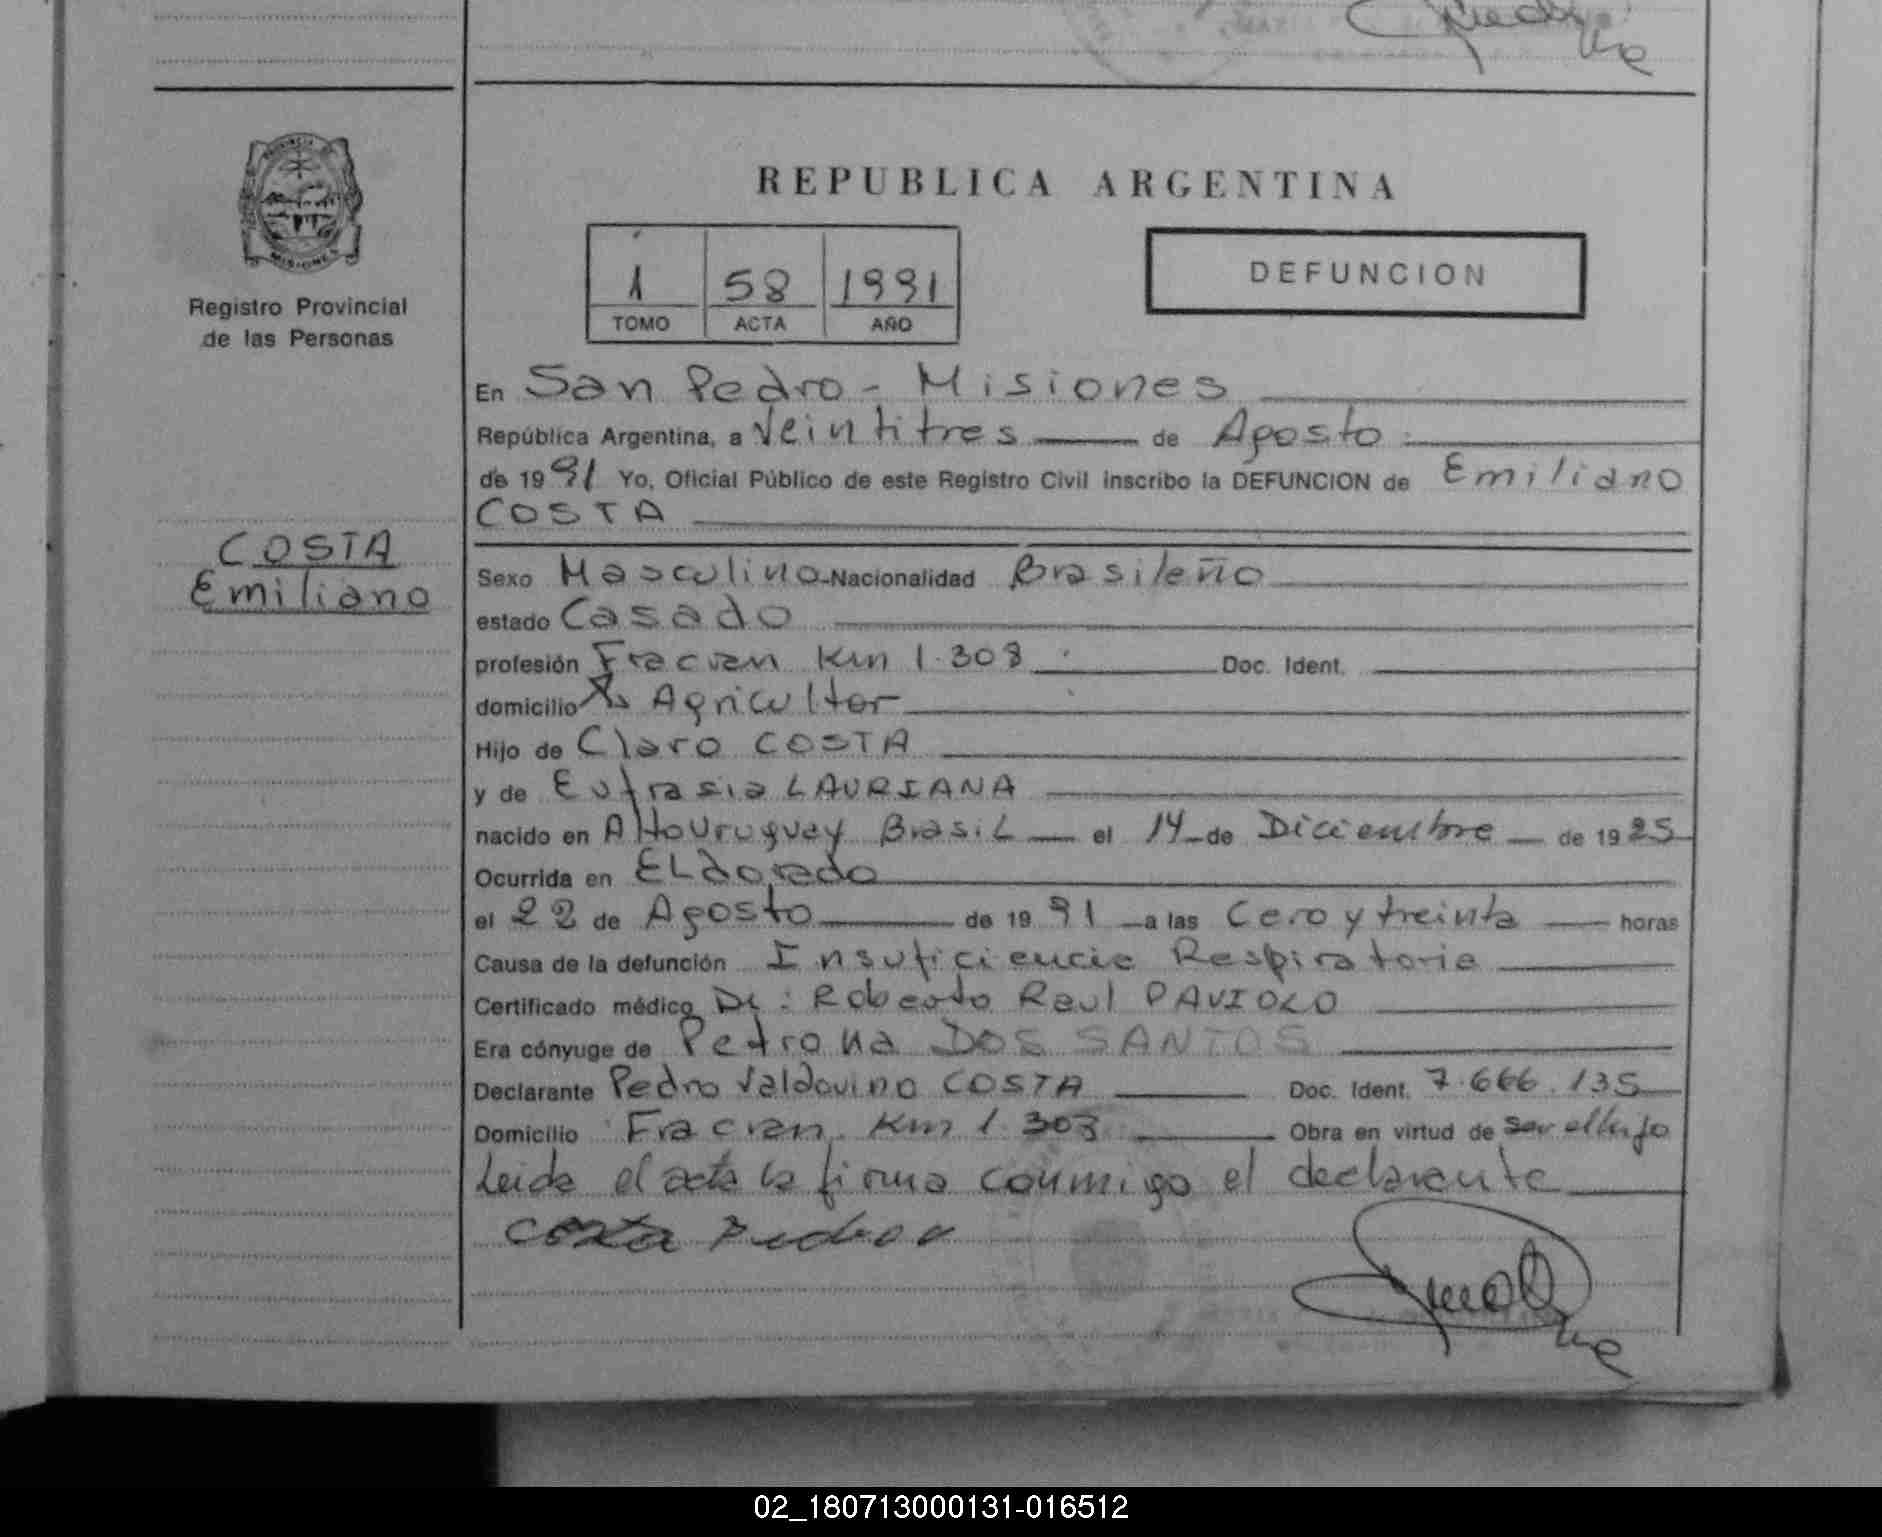 PROVINCIA
MISIONES
Registro Provincial
de las Personas
COSTA
Emiliano
REPUBLICA ARGENTINA
1 58 1991
TOMO ACTA AÑO
DEFUNCION
En San Pedro - Misiones
República Argentina, a Veintitres de Agosto
de 1991 Yo, Oficial Público de este Registro Civil inscribo la DEFUNCION de Emiliano
COSTA
Sexo Masculino Nacionalidad Brasileño
estado Casado
profesión Fracran Km 1.308 Doc. Ident.
domicilio Agricultor
Hijo de Claro COSTA
y de Eufrasia LAURIANA
nacido en Alto Uruguay Brasil el 14 de Diciembre de 1925
Ocurrida en ELdorado
el 22 de Agosto de 1991 a las Cero y treinta horas
Causa de la defunción Insuficiencia Respiratoria
Certificado médico Dr: Roberto Raul PAVIOLO
Era cónyuge de Petrona DOS SANTOS
Declarante Pedro Valdovino COSTA Doc. Ident. 7.666.135
Domicilio Fracran Km 1.303 Obra en virtud de ser el hijo
Leida el acta la firma conmigo el declarante
Costa Pedro V
02_180713000131-016512